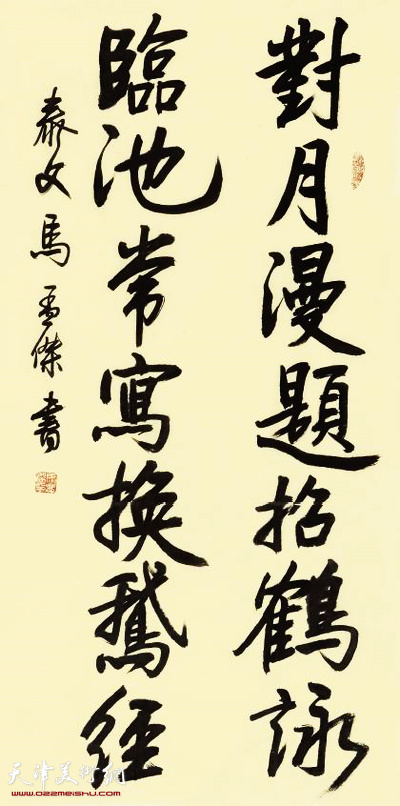 對月漫題招鶴詠
臨池常寫換鵝經
泰文馬孟傑書
天津美术网
www.022meishu.com